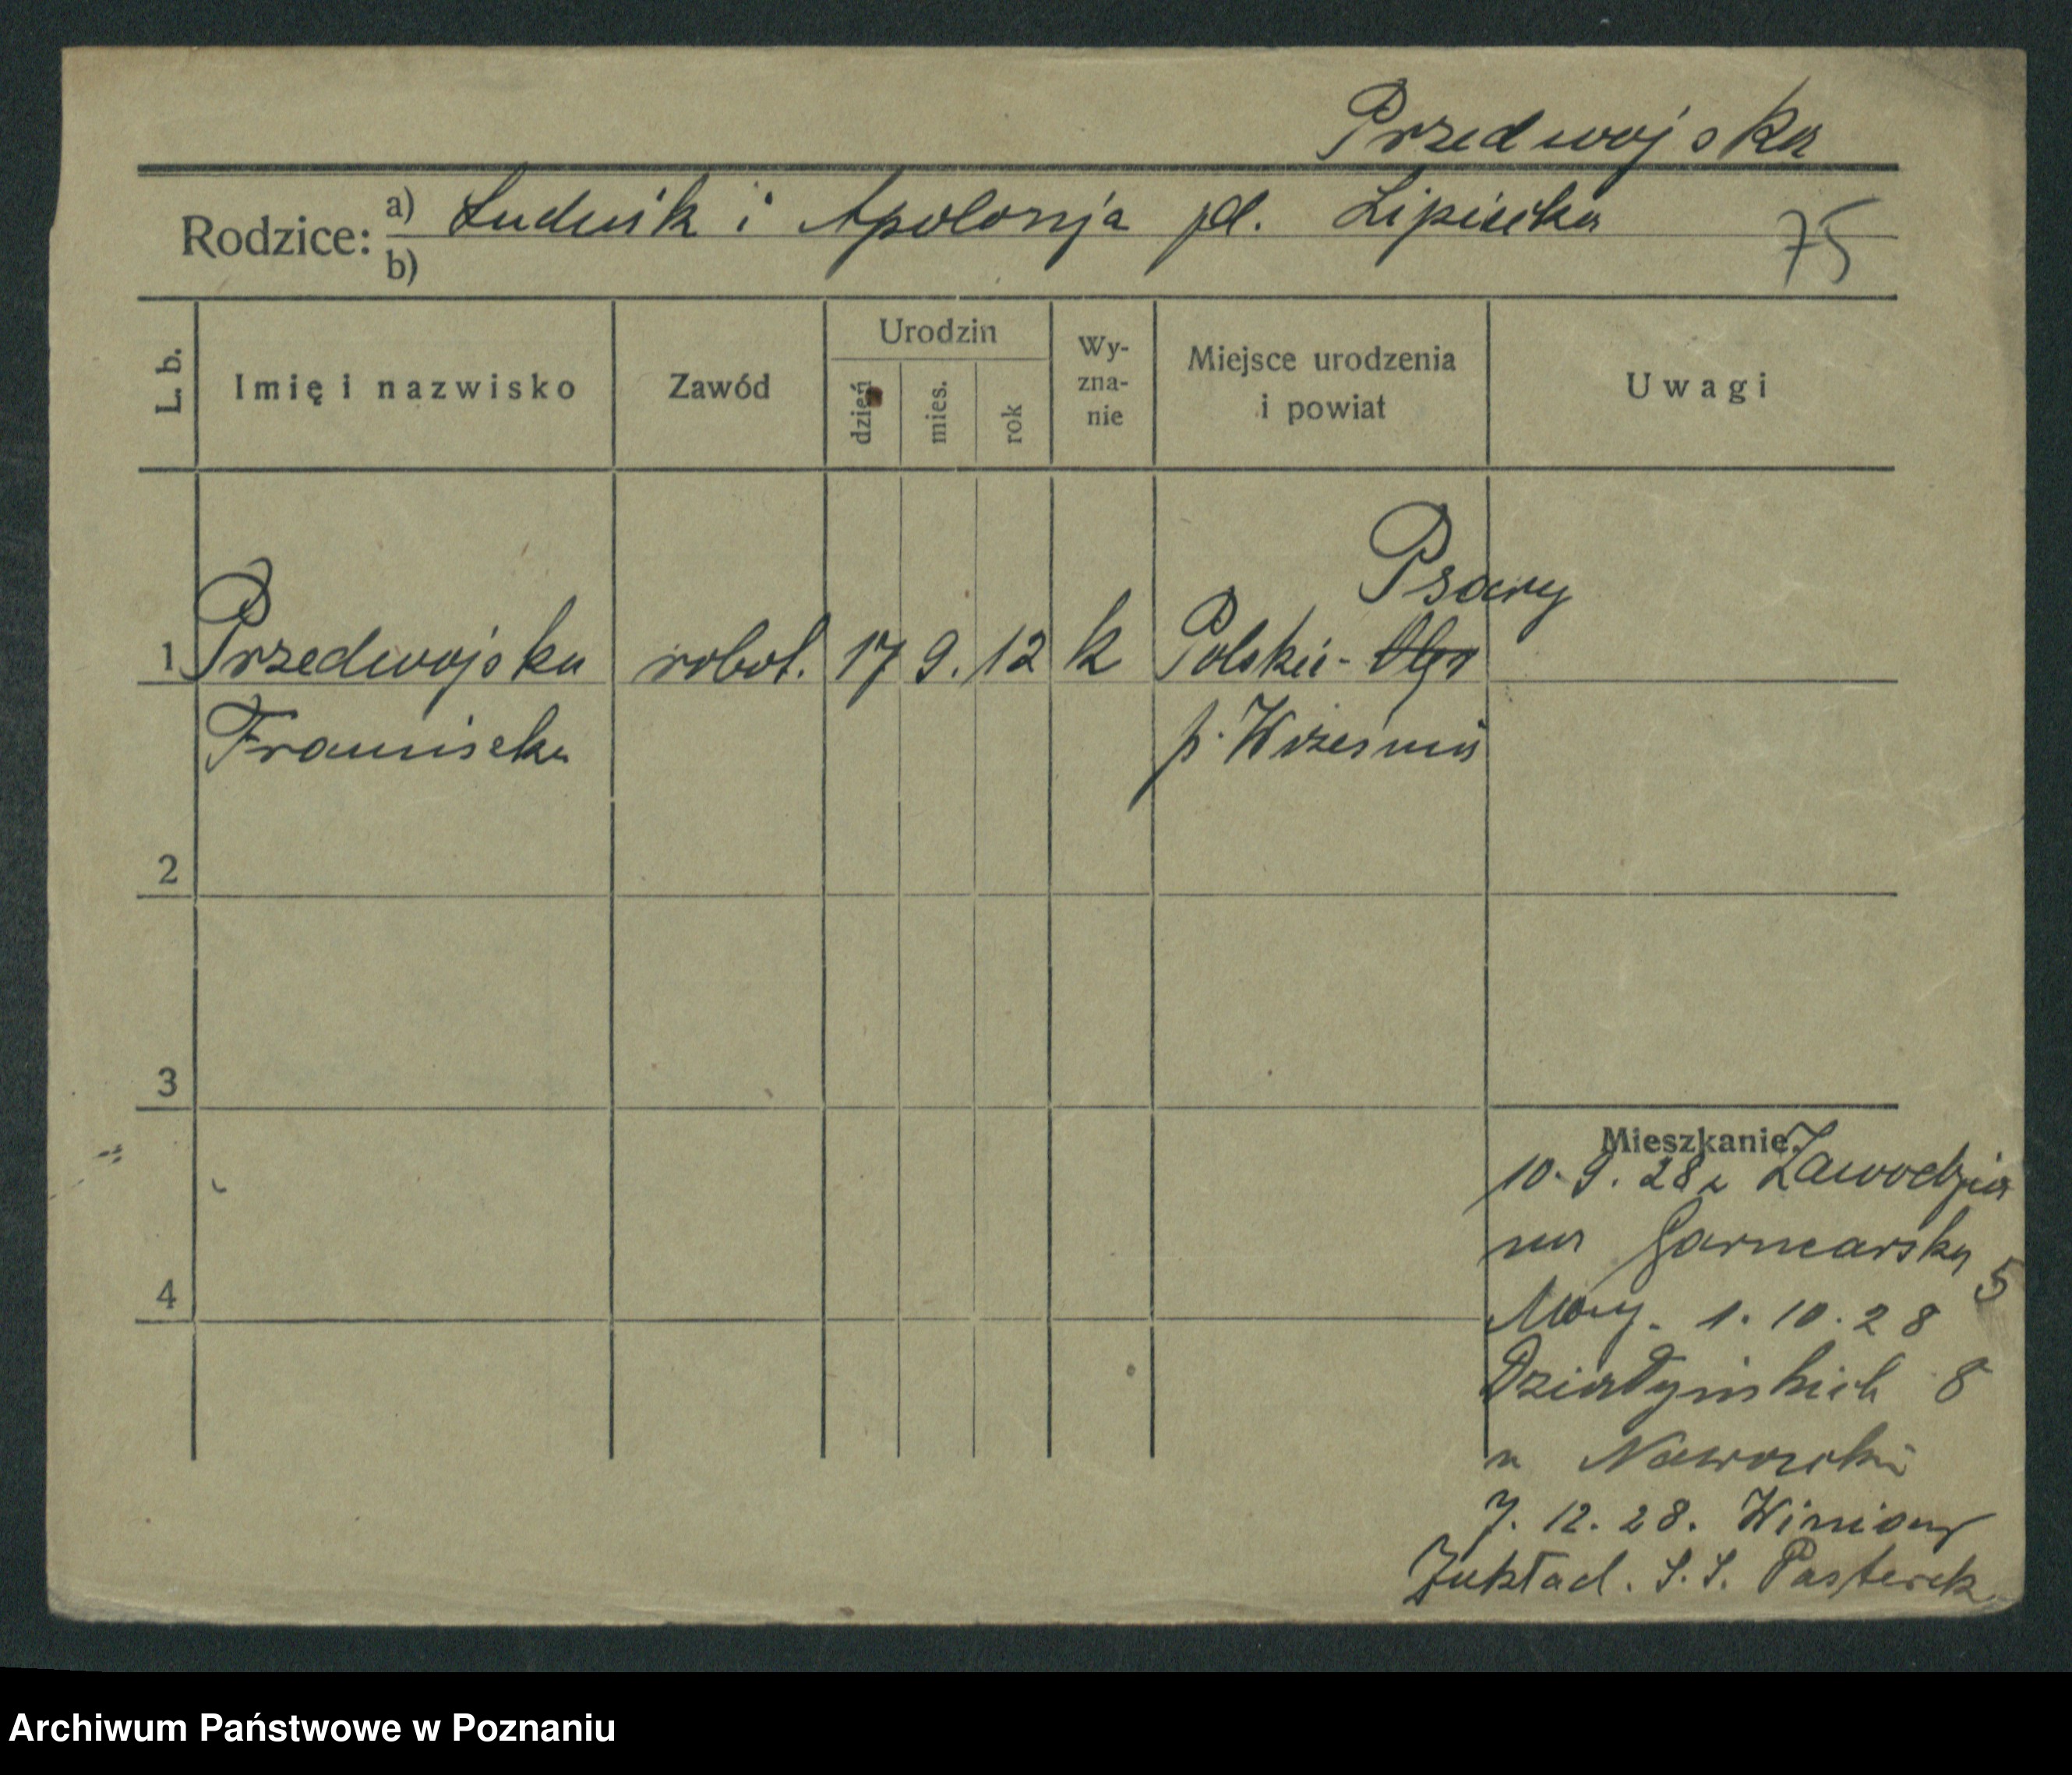 Przedwojska
Rodzice: a) Ludwik i Apolonja pd. Lipiecka
b)
75
L. b. Imię i nazwisko Zawód Urodzin dzień mies. rok Wy-zna-nie Miejsce urodzenia i powiat Uwagi
Psary
1 Przedwojska robot. 17 9. 12 k Polskie-
Franciszka p. Września
2
3
Mieszkanie
10. 9. 28 z Zawodzia
na Garncarska 5
1. 10. 28
Działyńskich 8
u Nawrocki
7. 12. 28. Winiary
Zakład. S. S. Pasterek
4
Archiwum Państwowe w Poznaniu